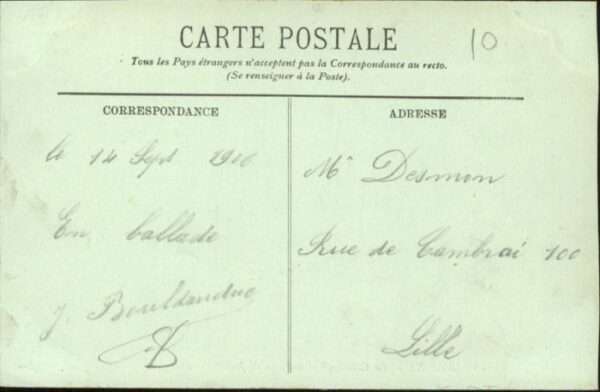 10
CARTE POSTALE
Tous les Pays étrangers n'acceptent pas la Correspondance au recto.
(Se renseigner à la Poste).
CORRESPONDANCE
le 14 Sept 1910
En ballade
J.
ADRESSE
Mr Desmon
Rue de Cambrai 100
Lille